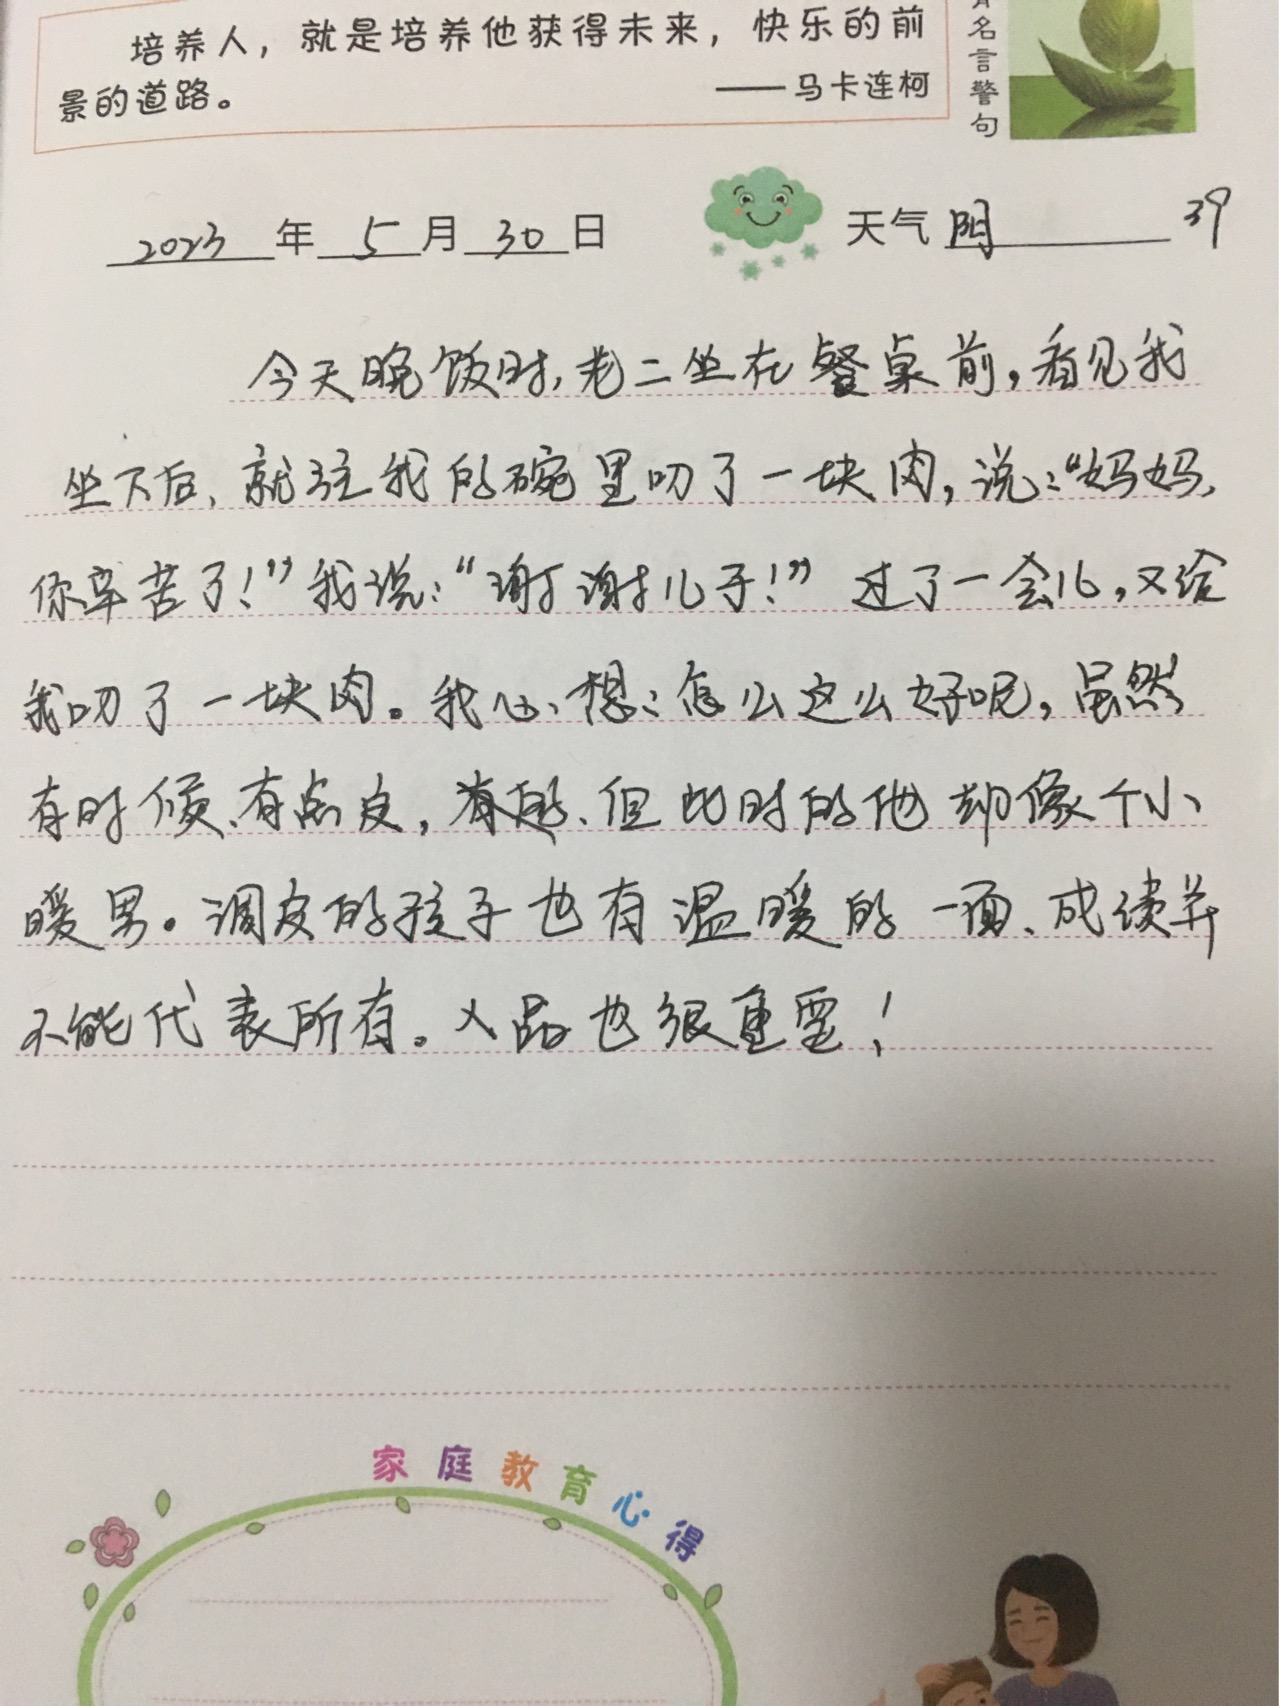 培养人，就是培养他获得未来，快乐的前
景的道路。
——马卡连柯
名言警句
2023年5月30日
天气 阴
39
今天晚饭时，老二坐在餐桌前，看见我
坐下后，就往我的碗里叨了一块肉，说：“妈妈，
你辛苦了！”我说：“谢谢儿子！”过了一会儿，又给
我叨了一块肉。我心想：怎么这么好呢，虽然
有时候、有点皮，、但此时的他却像个小
暖男。调皮的孩子也有温暖的一面、成绩并
不能代表所有。人品也很重要！
家庭教育心得